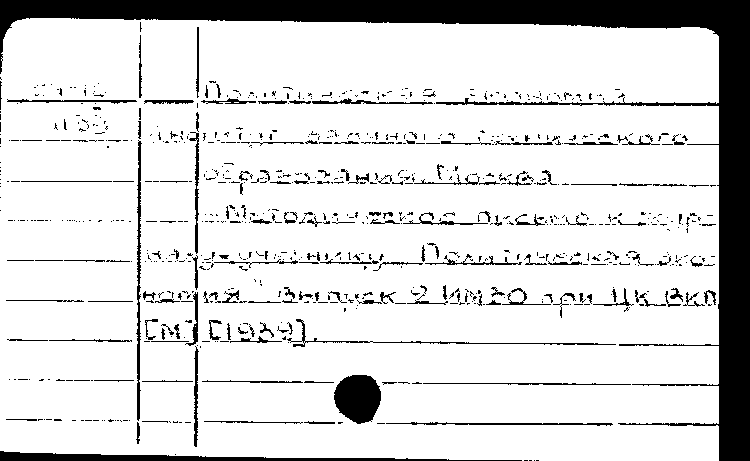 Политическая экономия
Институт заочного технического
образования. Москва
Методическое письмо к журна-
налу-учебнику „Политическая эко-
номия." Выпуск 2 ИМЗО при ЦК ВКП
[М] [1939].